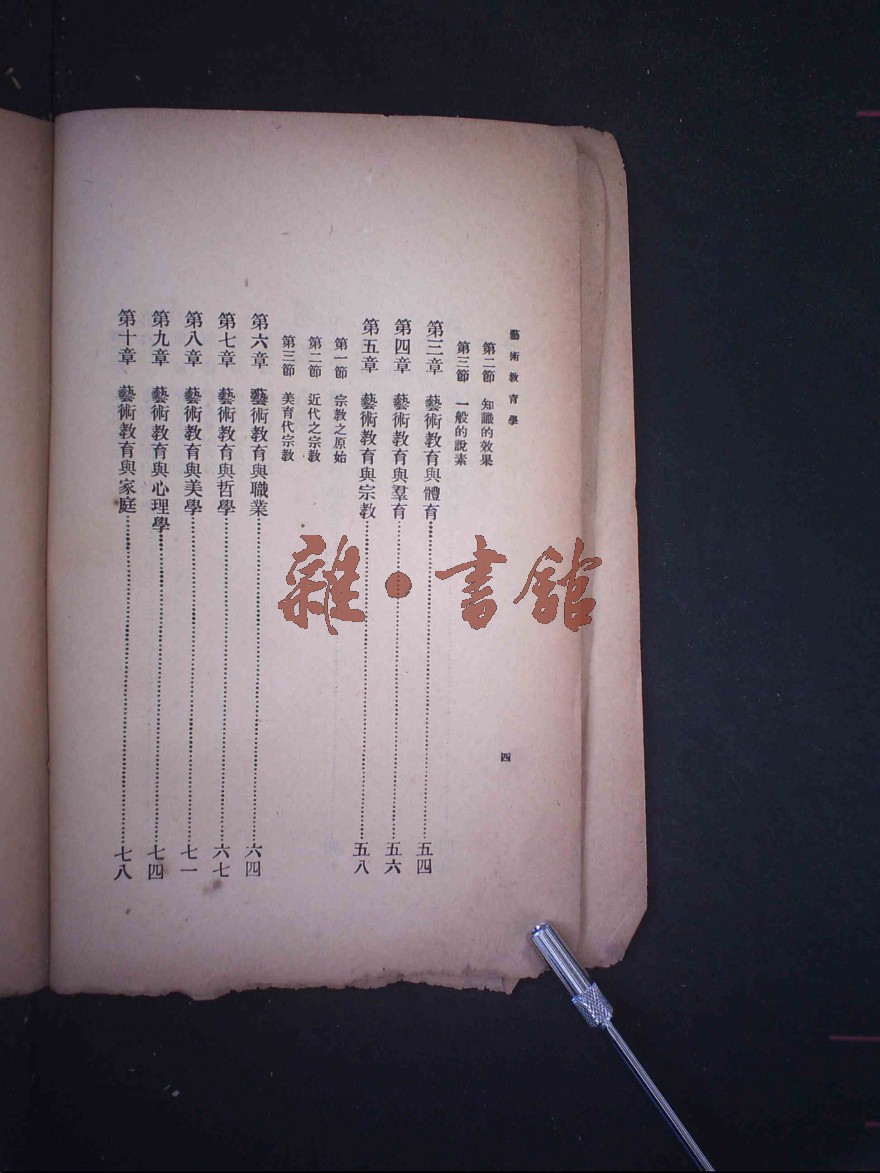 藝術教育學
四
第二節 知識的效果
第三節 一般的說素
第三章 藝術教育與體育……五四
第四章 藝術教育與羣育……五六
第五章 藝術教育與宗教……五八
第一節 宗教之原始
第二節 近代之宗教
第三節 美育代宗教
第六章 藝術教育與職業……六四
第七章 藝術教育與哲學……六七
第八章 藝術教育與美學……七一
第九章 藝術教育與心理學……七四
第十章 藝術教育與家庭……七八
雜·書館